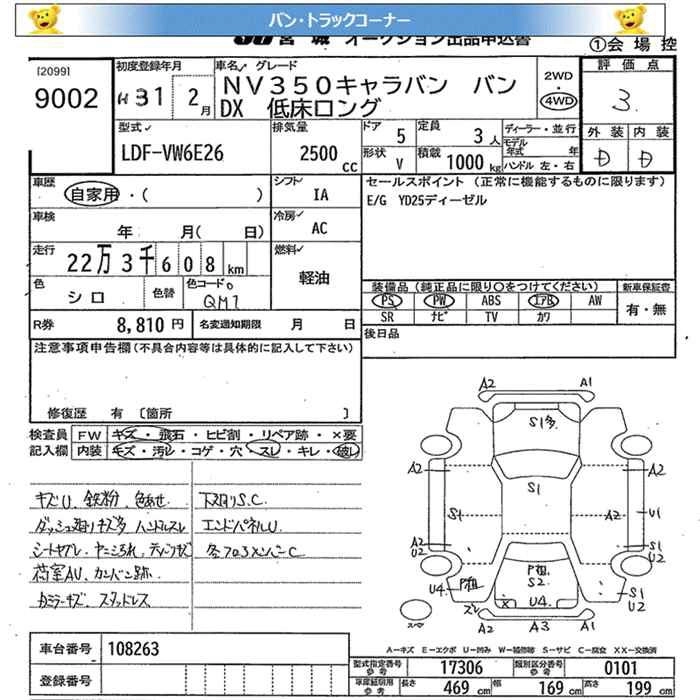 バン・トラックコーナー
JU宮城 オークション出品申込書
①会場控
[2099]
9002
初度登録年月
H31 2月
車名 グレード
NV350キャラバン バン
DX 低床ロング
2WD
4WD
評価点
3
型式
LDF-VW6E26
排気量
2500 cc
ドア 5
形状 V
定員 3人
積載 1000kg
ディーラー・並行
モデル年式 年
ハンドル 左・右
外装 内装
D D
車歴
自家用・( )
シフト
IA
セールスポイント (正常に機能するものに限ります)
E/G YD25ディーゼル
車検
年 月( 日)
冷房
AC
走行
22万3千608km
燃料
軽油
色
シロ
色替
色コードNo
QM1
装備品 (純正品に限り○をつけてください)
新車保証書
PS PW ABS エアB AW
SR ナビ TV カワ
有・無
R券 8,810円
名変通知期限 月 日
後日品
注意事項申告欄(不具合内容等は具体的に記入して下さい)
修復歴 有 [箇所 ]
検査員
記入欄
FW キズ・飛石・ヒビ割・リペア跡・×要
内装 キズ・汚レ・コゲ・穴・スレ・キレ・破レ
キズU、鉄粉、色あせ.
ダッシュ廻りキズ多 ハンドルスレ
シートヤブレ、ヤニよごれ
荷室AU、カンバン跡.
カラーキズ、スタッドレス
下廻りS.C.
エンドパネルU
A2 A1
S1多
A2 A2
S1
S1 A2 U1
A2
U2
S1
U2
P粗
S2
P粗
U4 スレ
× U4
S1
U2
スペア
A2 A3 A1
A=キズ E=エクボ U=凹み W=補修跡 S=サビ C=腐食 XX=交換済
車台番号 108263
登録番号
型式指定番号
参考
17306
類別区分番号
参考
0101
車庫証明用
参考
長さ 469cm 幅 169cm 高さ 199cm